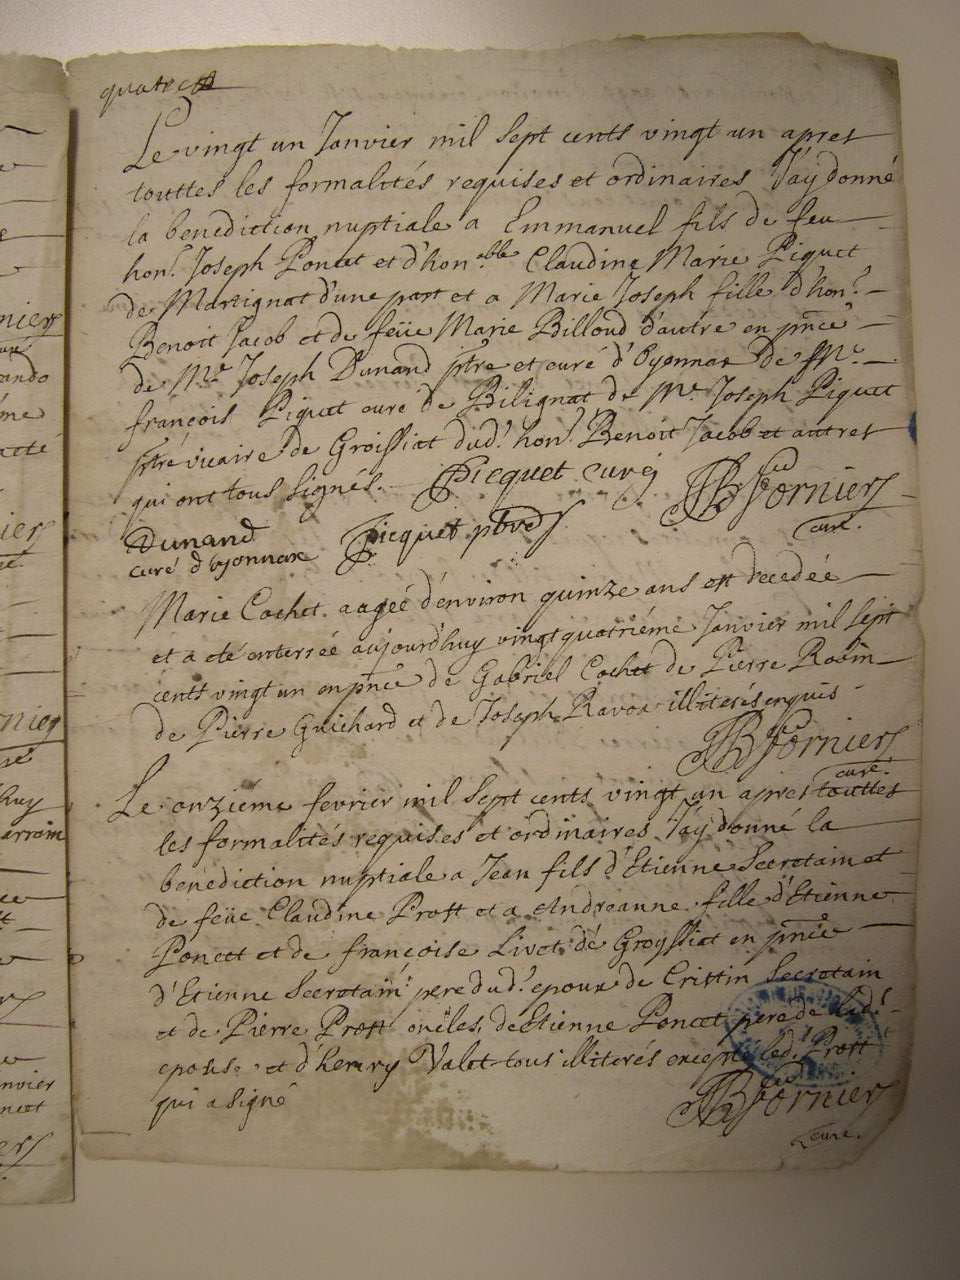 quatre
Le vingt un Janvier mil sept cents vingt un apres
touttes les formalités requises et ordinaires J'ay donné
la benediction nuptiale a Emmanuel fils de feu
hon.^t Joseph Poncet et d'hon.^able Claudine Marie Piquet
de Martignat d'une part et a Marie Joseph fille d'hon.^t
Benoit Jacob et de feüe Marie Billoud d'autre en pnce
de M.^r Joseph Dunand ptre et curé d'Oyonnax de M.^e
françois Piquet curé de Bilignat de M.^e Joseph Piquet
ptre vicaire de Groissiat dud.^t hon.^t Benoit Jacob et autres
qui ont tous signés. Picquet curé
Fornier
curé.
Dunand
curé d'oyonnax Picquet
Marie Cochet aagéé d'environ quinze ans est decedéé
et a eté enterréé aujourd'huy vingt quatriéme Janvier mil sept
cents vingt un en pnce de Gabriel Cochet de Pierre
de Pierre Guichard et de Joseph Ravoa illiterés enquis
Fornier
curé.
Le onzieme fevrier mil sept cents vingt un apres touttes
les formalités requises et ordinaires J'ay donné la
benediction nuptiale a Jean fils d'Etienne Secretain et
de feüe Claudine Prost et a Andreanne fille d'Etienne
Poncet et de françoise Livet de Groyssiat en pnce
d'Etienne Secretain pere dud.^t epoux de Cristin Secretain
et de Pierre Prost oncles, de Etienne Poncet pere de lad.^t
epouse et d'henry Valet tous illiterés excepté led.^t Prost
qui a signé
Fornier
curé.